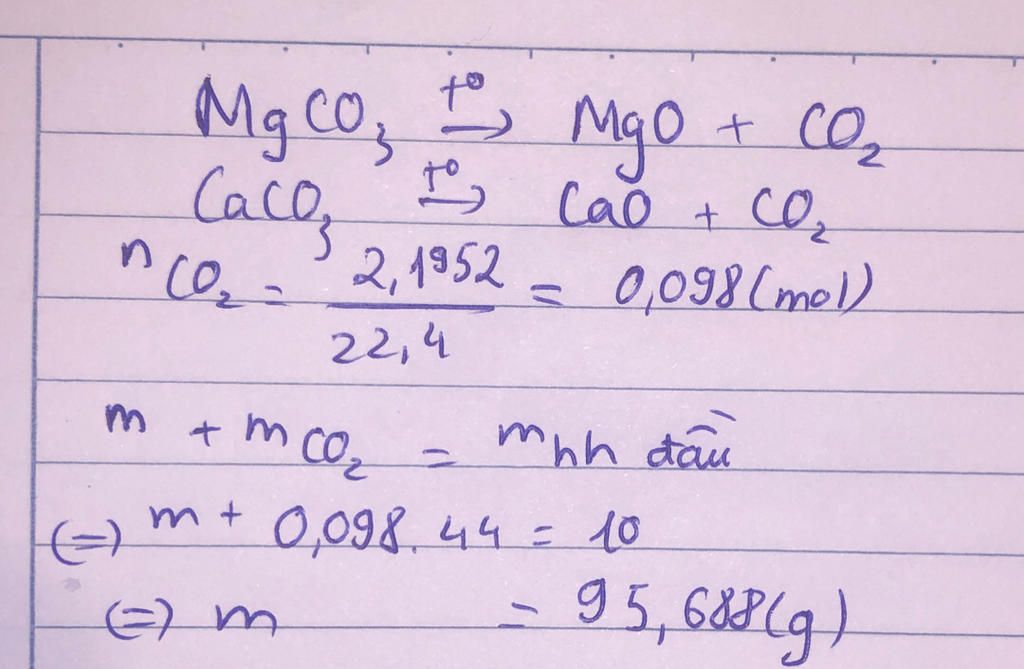 MgCO₃ t⁰→ MgO + CO₂
CaCO₃ t⁰→ CaO + CO₂
nCO₂ = 2,1952/22,4 = 0,098(mol)
m + mCO₂ = mhh đầu
(=) m + 0,098.44 = 10
(=) m = 95,688(g)